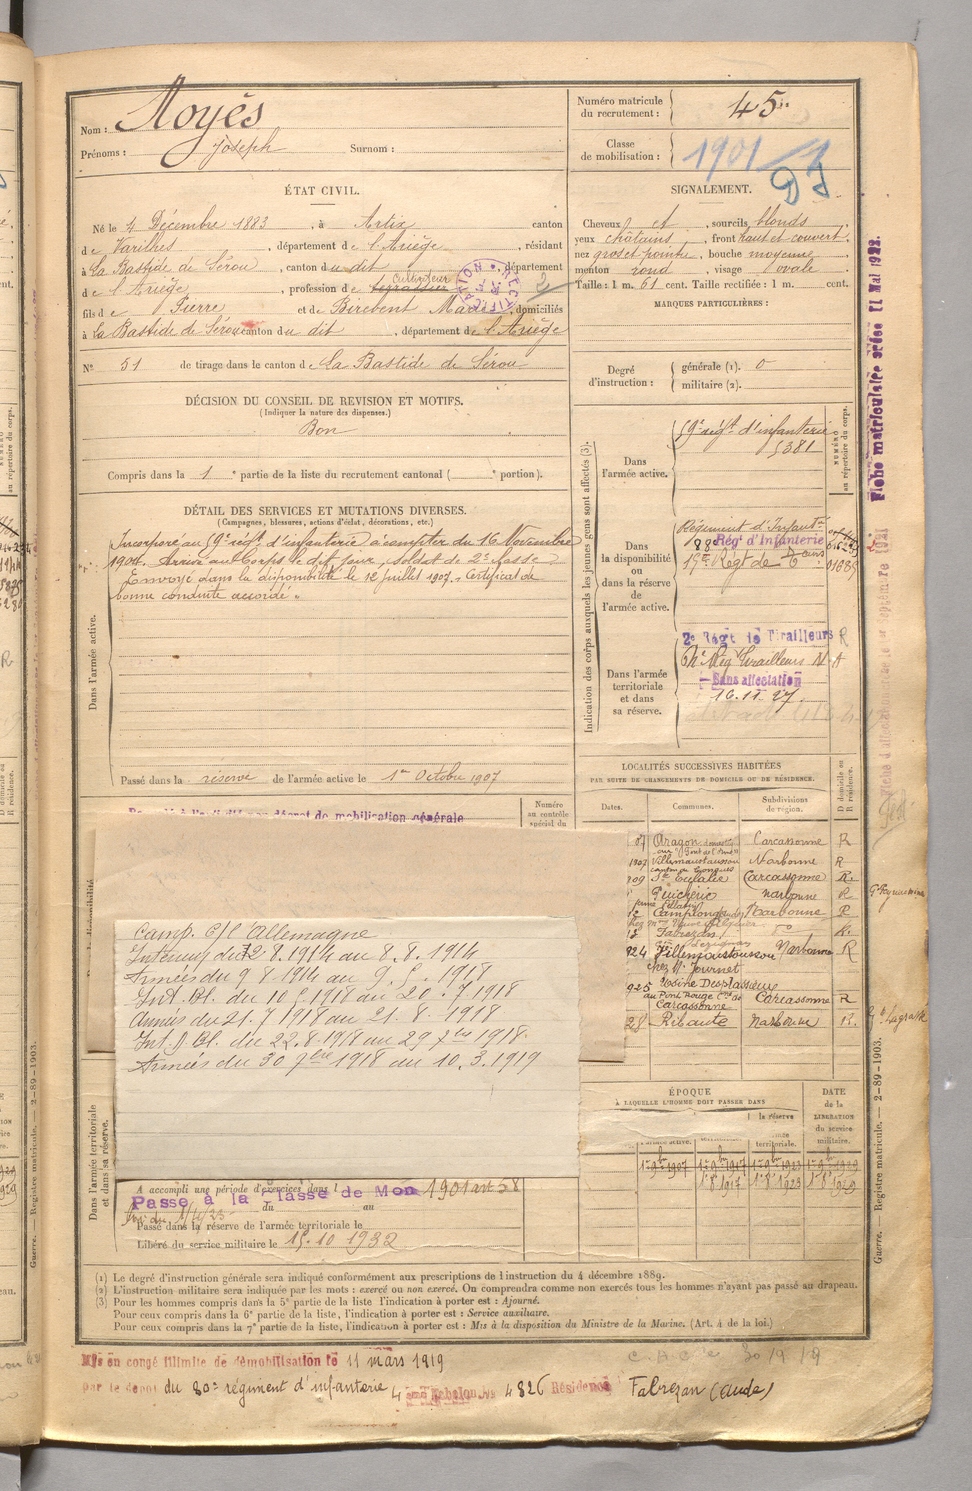 Nom : Noyès
Prénoms : Joseph Surnom :
Numéro matricule du recrutement : 45
Classe de mobilisation : 1901
ÉTAT CIVIL.
Né le 4 Décembre 1883, à Artix canton
de Varilhes, département de l'Ariège, résidant
à La Bastide de Sérou, canton du dit, département
de l'Ariège, profession de cultivateur
fils de Pierre et de Birebent Marie, domiciliés
à La Bastide de Sérou canton du dit, département de l'Ariège
N° 51 de tirage dans le canton de La Bastide de Sérou
SIGNALEMENT.
Cheveux et, sourcils blonds
yeux châtains, front haut et couvert,
nez gros et pointu, bouche moyenne
menton rond, visage ovale
Taille : 1 m. 61 cent. Taille rectifiée : 1 m. cent.
MARQUES PARTICULIÈRES :
Degré d'instruction : générale (1). 0
militaire (2).
DÉCISION DU CONSEIL DE REVISION ET MOTIFS.
(Indiquer la nature des dispenses.)
Bon
Compris dans la 1e partie de la liste du recrutement cantonal ( e portion).
DÉTAIL DES SERVICES ET MUTATIONS DIVERSES.
(Campagnes, blessures, actions d'éclat, décorations, etc.)
Incorporé au 59e régt d'infanterie à compter du 16 Novembre
1904. Arrivé au Corps le dit jour, soldat de 2e classe
Envoyé dans la disponibilité le 12 Juillet 1907. Certificat de
bonne conduite accordé.
Dans l'armée active.
Passé dans la réserve de l'armée active le 1er Octobre 1907
Indication des corps auxquels les jeunes gens sont affectés (3).
NUMÉRO au répertoire du corps.
Dans l'armée active.
59e régt d'infanterie
5381
Dans la disponibilité ou dans la réserve de l'armée active.
Régiment d'Infant
88 Régt d'Infanterie
Dans l'armée territoriale et dans sa réserve.
2e Régt de Tirailleurs R
Régt Tirailleurs
Sans affectation
16.11.27
Fiche matriculaire créée 11 Mai 1922.
LOCALITÉS SUCCESSIVES HABITÉES
PAR SUITE DE CHANGEMENTS DE DOMICILE OU DE RÉSIDENCE.
Dates. Communes. Subdivisions de région. D domicile ou R résidence.
07 Aragon Carcassonne R
1907 Villemoustaussou Narbonne R
909 Ste Eulalie Carcassonne R.
Puichéric Narbonne R
12 Camplong Narbonne R
Fabrezan do R.
924 Villemoustoussou Narbonne R
chez Mr Journet
925 Usine Desplassieux
au Pont Rouge
Carcassonne Carcassonne R
28 Ribaute Narbonne R.
de mobilisation générale
Numéro au contrôle spécial du
Camp. C/ l'Allemagne
Intérieur du 12 8.1914 au 8.8.1914
Armées du 9 8.1914 au 9.5.1918
Int. Bl. du 10 5.1918 au 20.7.1918
Armées du 21.7.1918 au 21.8.1918
Int. Bl. du 22.8.1918 au 29 7bre 1918.
Armées du 30 7bre 1918 au 10.3.1919
ÉPOQUE
À LAQUELLE L'HOMME DOIT PASSER DANS
la réserve
territoriale.
DATE de la LIBÉRATION du service militaire.
1er 8bre 1907 1er 8bre 1917 1er 8bre 1923 1er 8bre 1929
1.8.1917 1.8.1923
Dans l'armée territoriale et dans sa réserve.
A accompli une période d'exercices dans l
Passé à la Classe de Mon 1901 art 58
du au
Passé dans la réserve de l'armée territoriale le
Libéré du service militaire le 15.10 1932
(1) Le degré d'instruction générale sera indiqué conformément aux prescriptions de l'instruction du 4 décembre 1889.
(2) L'instruction militaire sera indiquée par les mots : exercé ou non exercé. On comprendra comme non exercés tous les hommes n'ayant pas passé au drapeau.
(3) Pour les hommes compris dans la 5e partie de la liste l'indication à porter est : Ajourné.
Pour ceux compris dans la 6e partie de la liste, l'indication à porter est : Service auxiliaire.
Pour ceux compris dans la 7e partie de la liste, l'indication à porter est : Mis à la disposition du Ministre de la Marine. (Art. 4 de la loi.)
Guerre. — Registre matricule. — 2-89-1903.
Mis en congé illimité de démobilisation le 11 mars 1919
par le dépôt du 80e régiment d'infanterie 4eme Echelon No 4826 Résidence Fabrezan (Aude)